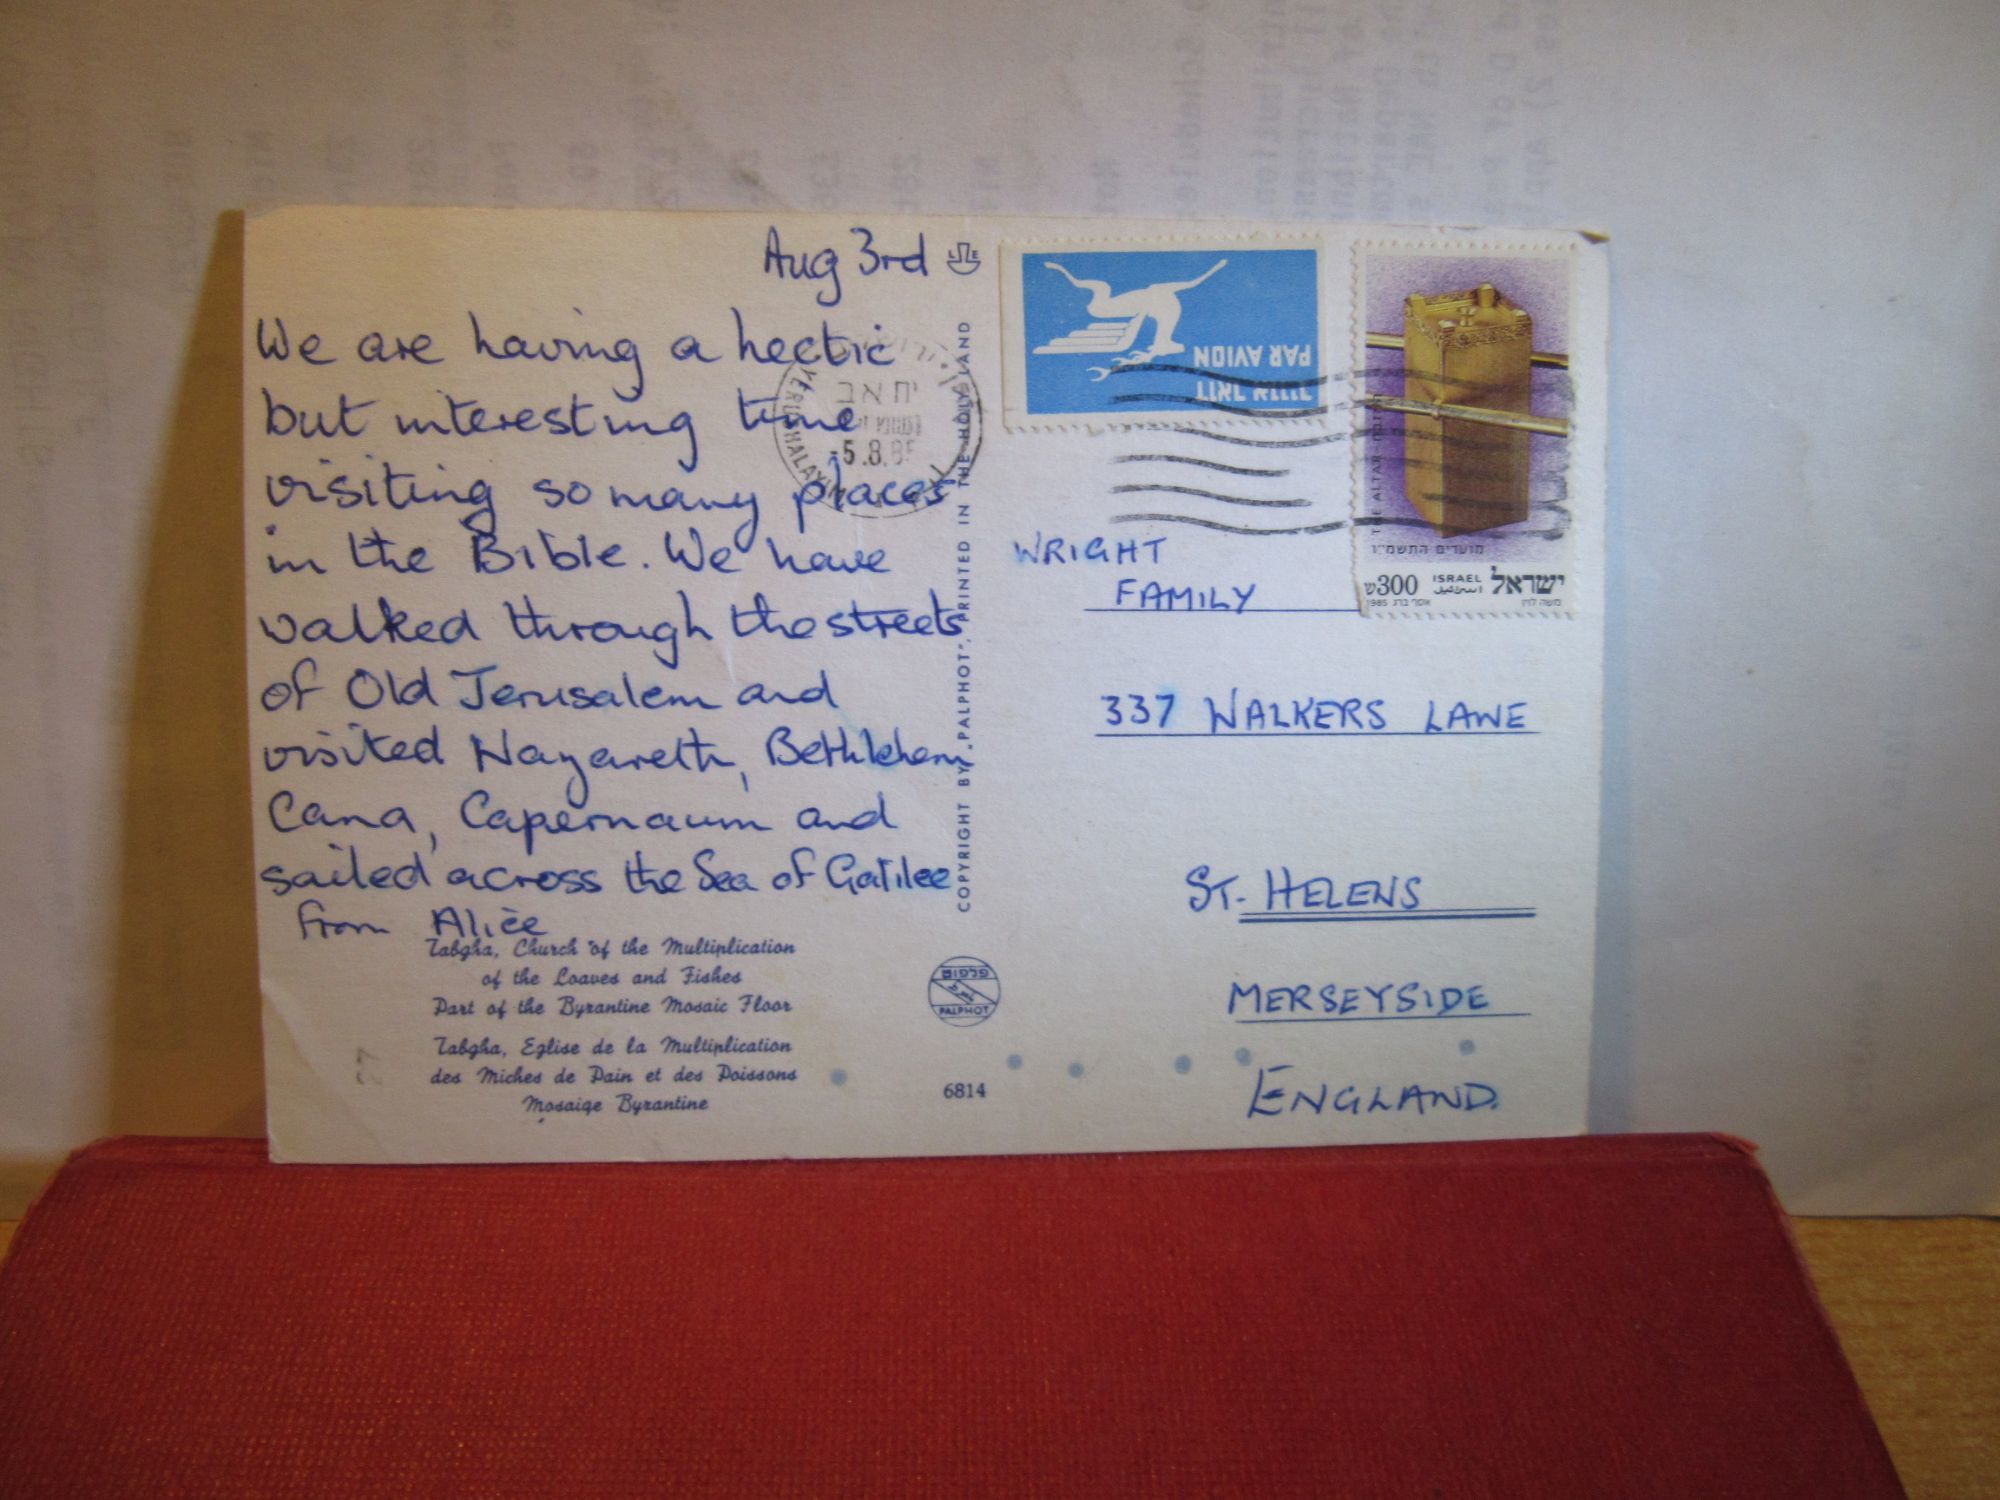 Aug 3rd
We are having a hectic
but interesting time
visiting so many places
in the Bible. We have
walked through the streets
of Old Jerusalem and
visited Nazareth, Bethlehem
Cana, Capernaum and
sailed across the Sea of Galilee
from Alice
Tabgha, Church of the Multiplication
of the Loaves and Fishes
Part of the Byzantine Mosaic Floor
Tabgha, Eglise de la Multiplication
des Miches de Pain et des Poissons
Mosaiqe Byzantine
COPYRIGHT BY „PALPHOT", PRINTED IN THE HOLY LAND
יח אב
-5.8.85
YERUSHALAYIM
פלפוט
PALPHOT
6814
דואר אויר
PAR AVION
THE ALTAR
מועדים התשמ"ו
ש300 ISRAEL اسرائيل ישראל
1985
WRIGHT
FAMILY
337 WALKERS LANE
ST. HELENS
MERSEYSIDE
ENGLAND.